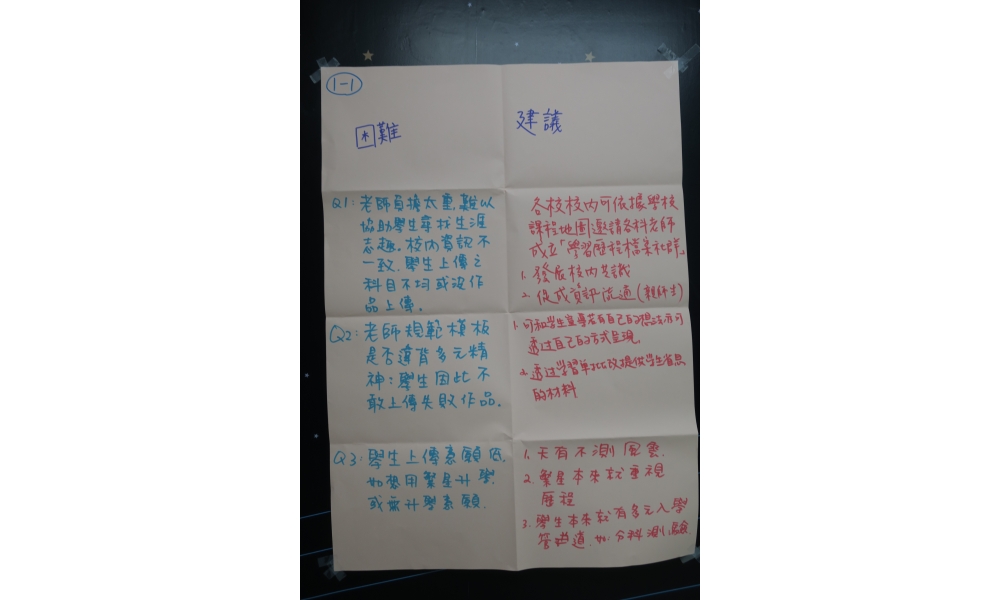 1-1
困難
建議
Q1:老師負擔太重,難以
協助學生尋找生涯
志趣。校內資訊不
一致.學生上傳之
科目不均或沒作
品上傳。
各校校內可依據學校
課程地圖邀請各科老師
成立「學習歷程檔案社群」
1. 發展校內共識
2. 促成資訊流通(親師生)
Q2:老師規範模板
是否違背多元精
神:學生因此不
敢上傳失敗作品。
1.可和學生宣導若有自己的想法亦可
透過自己的方式呈現。
2.透過學習單批改提供學生省思
的材料
Q3:學生上傳意願低.
如想用繁星升學.
或無升學意願.
1.天有不測風雲.
2.繁星本來就重視
歷程
3.學生本來就有多元入學
管道.如:分科測驗